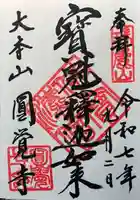 奉拝
令和七年
九月二日
寶冠釋迦如来
大本山
圓覺寺